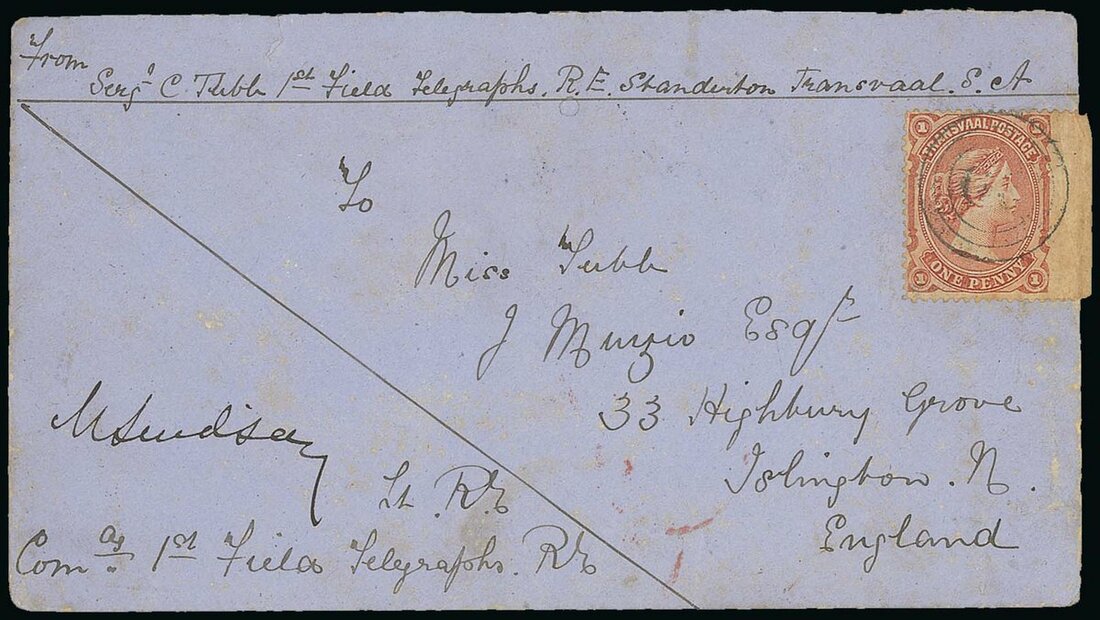 From
Sergt C. Tubb 1st Field Telegraphs. R.E. Standerton Transvaal. S. A
1 TRANSVAAL POSTAGE 1
1 ONE PENNY 1
To
Miss Tubb
J Muzio Esqr
33 Highbury Grove
Islington. N.
England
MLindsay
Lt. RE
Comdg 1st Field Telegraphs. RE